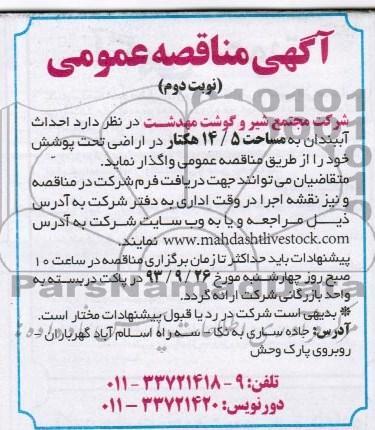 آگهی مناقصه عمومی
(نوبت دوم)
شرکت مجتمع شیر و گوشت مهدشت در نظر دارد احداث
آببندان به مساحت ۱۴/۵ هکتار در اراضی تحت پوشش
خود را از طریق مناقصه عمومی واگذار نماید.
متقاضیان می توانند جهت دریافت فرم شرکت در مناقصه
و نیز نقشه اجرا در وقت اداری به دفتر شرکت به آدرس
ذیل مراجعه و یا به وب سایت شرکت به آدرس
www.mahdashtlivestock.com نمایند.
پیشنهادات باید حداکثر تا زمان برگزاری مناقصه در ساعت ۱۰
صبح روز چهارشنبه مورخ ۹۳/۹/۲۶ در پاکت دربسته به
واحد بازرگانی شرکت ارائه گردد.
* بدیهی است شرکت در رد یا قبول پیشنهادات مختار است.
آدرس: جاده ساری به نکا- سه راه اسلام آباد گهرباران -
روبروی پارک وحش
تلفن: ۹ - ۳۳۷۲۱۴۱۸-۰۱۱
دورنویس: ۳۳۷۲۱۴۲۰-۰۱۱